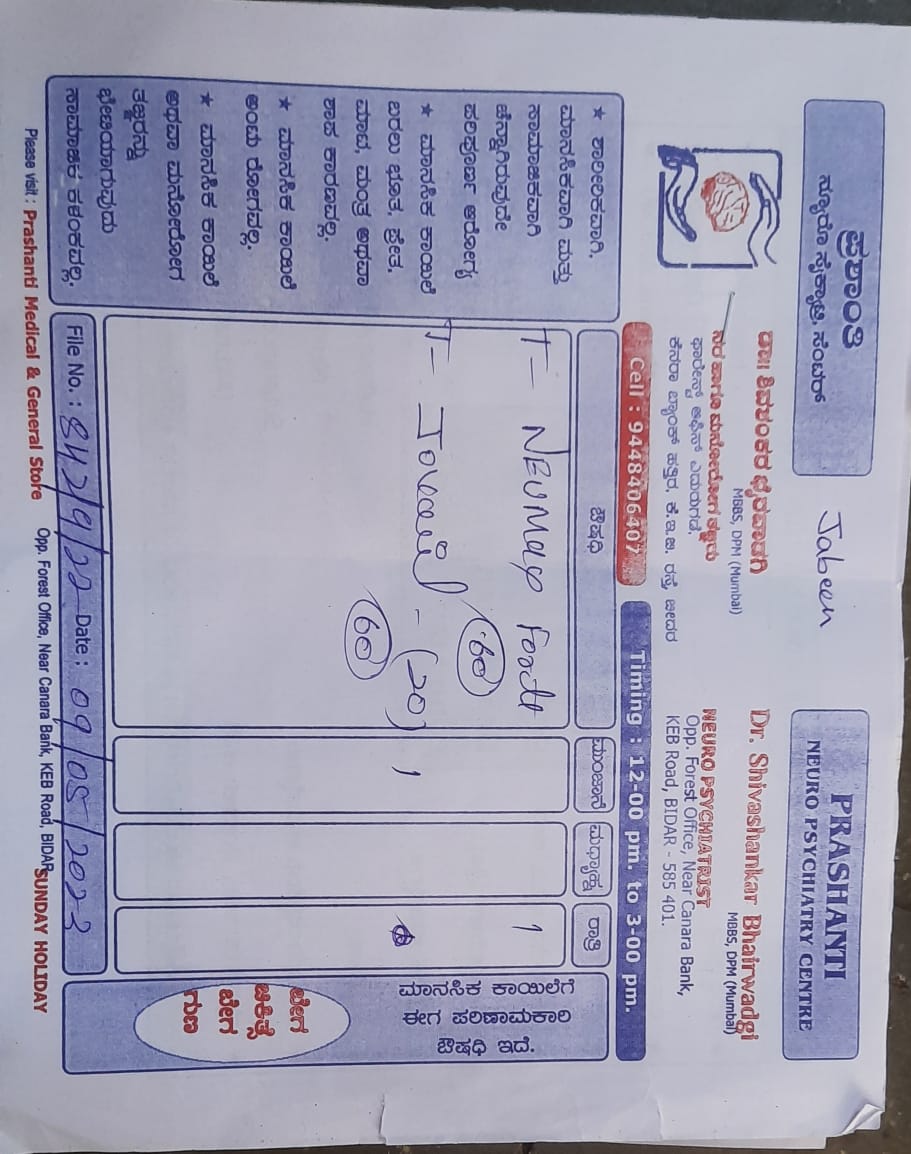 ಪ್ರಶಾಂತಿ
ನ್ಯೂರೊ ಸೈಕ್ಯಾಟ್ರಿ ಸೆಂಟರ್
Jabeen
PRASHANTI
NEURO PSYCHIATRY CENTRE
ಡಾ॥ ಶಿವಶಂಕರ ಭೈರವಾಡಗಿ
MBBS, DPM (Mumbai)
ನರ ಹಾಗೂ ಮನೋರೋಗ ತಜ್ಞರು
ಫಾರೇಸ್ಟ್ ಆಫಿಸ್ ಎದುರುಗಡೆ,
ಕೆನರಾ ಬ್ಯಾಂಕ್ ಹತ್ತಿರ, ಕೆ.ಇ.ಬಿ. ರಸ್ತೆ, ಬೀದರ
Dr. Shivashankar Bhairwadgi
MBBS, DPM (Mumbai)
NEURO PSYCHIATRIST
Opp. Forest Office, Near Canara Bank,
KEB Road, BIDAR - 585 401.
Cell : 9448406407
Timing : 12-00 pm. to 3-00 pm.
★ ಶಾರೀರಿಕವಾಗಿ,
ಮಾನಸಿಕವಾಗಿ ಮತ್ತು
ಸಾಮಾಜಿಕವಾಗಿ
ಚೆನ್ನಾಗಿರುವುದೇ
ಪರಿಪೂರ್ಣ ಆರೋಗ್ಯ
★ ಮಾನಸಿಕ ಕಾಯಿಲೆ
ಬರಲು ಭೂತ, ಪ್ರೇತ,
ಮಾಟ, ಮಂತ್ರ ಅಥವಾ
ಶಾಪ ಕಾರಣವಲ್ಲ.
★ ಮಾನಸಿಕ ಕಾಯಿಲೆ
ಅಂಟು ರೋಗವಲ್ಲ.
★ ಮಾನಸಿಕ ಕಾಯಿಲೆ
ಅಥವಾ ಮನೋರೋಗ
ತಜ್ಞರನ್ನು
ಭೇಟಿಯಾಗುವುದು
ಸಾಮಾಜಿಕ ಕಳಂಕವಲ್ಲ.
ಔಷಧಿ ಮುಂಜಾನೆ ಮಧ್ಯಾಹ್ನ ರಾತ್ರಿ
T- Forte 1
60
T- (20) 1
60
ಮಾನಸಿಕ ಕಾಯಿಲೆಗೆ
ಈಗ ಪರಿಣಾಮಕಾರಿ
ಔಷಧಿ ಇದೆ.
ಬೇಗ
ಚಿಕಿತ್ಸೆ
ಬೇಗ
ಗುಣ
File No. : 842/9/22 Date : 09/05/2023
Please visit : Prashanti Medical & General Store Opp. Forest Office, Near Canara Bank, KEB Road, BIDAR SUNDAY HOLIDAY